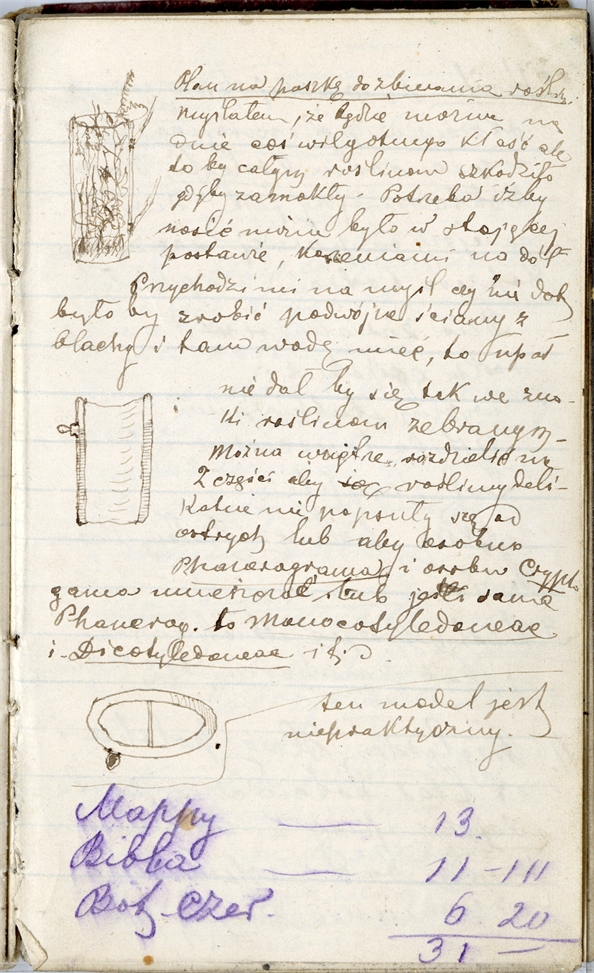 Plan na puszkę do zbierania rośl.
myślałem, że będzie można na
dnie coś wilgotnego kłaść ale
to by całym roślinom szkodziło
gdyby zamokły. Potrzeba iżby
nosić można było w stojącej
postawie, korzeniami na dół
Przychodzi mi na myśl czy nie dob
było by zrobić podwójne ściany z
blachy i tam wodę mieć, to upał
nie dał by się tak we zna-
ki roślinom zebranym-
Można wnętrze rozdzielić na
2 części aby rośliny deli-
katne nie popsuły się od
ostrych lub aby osobno
Phanerogama i osobn Crypto
gama umieszczać lub jeśli same
Phanerog. to Monocotyledoneae
i Dicotyledoneae i t. d.
ten model jest
niepraktyczny.
Mappy — 13.
Bibła — 11 - 111
Boż. Czer. 6 20
31 —